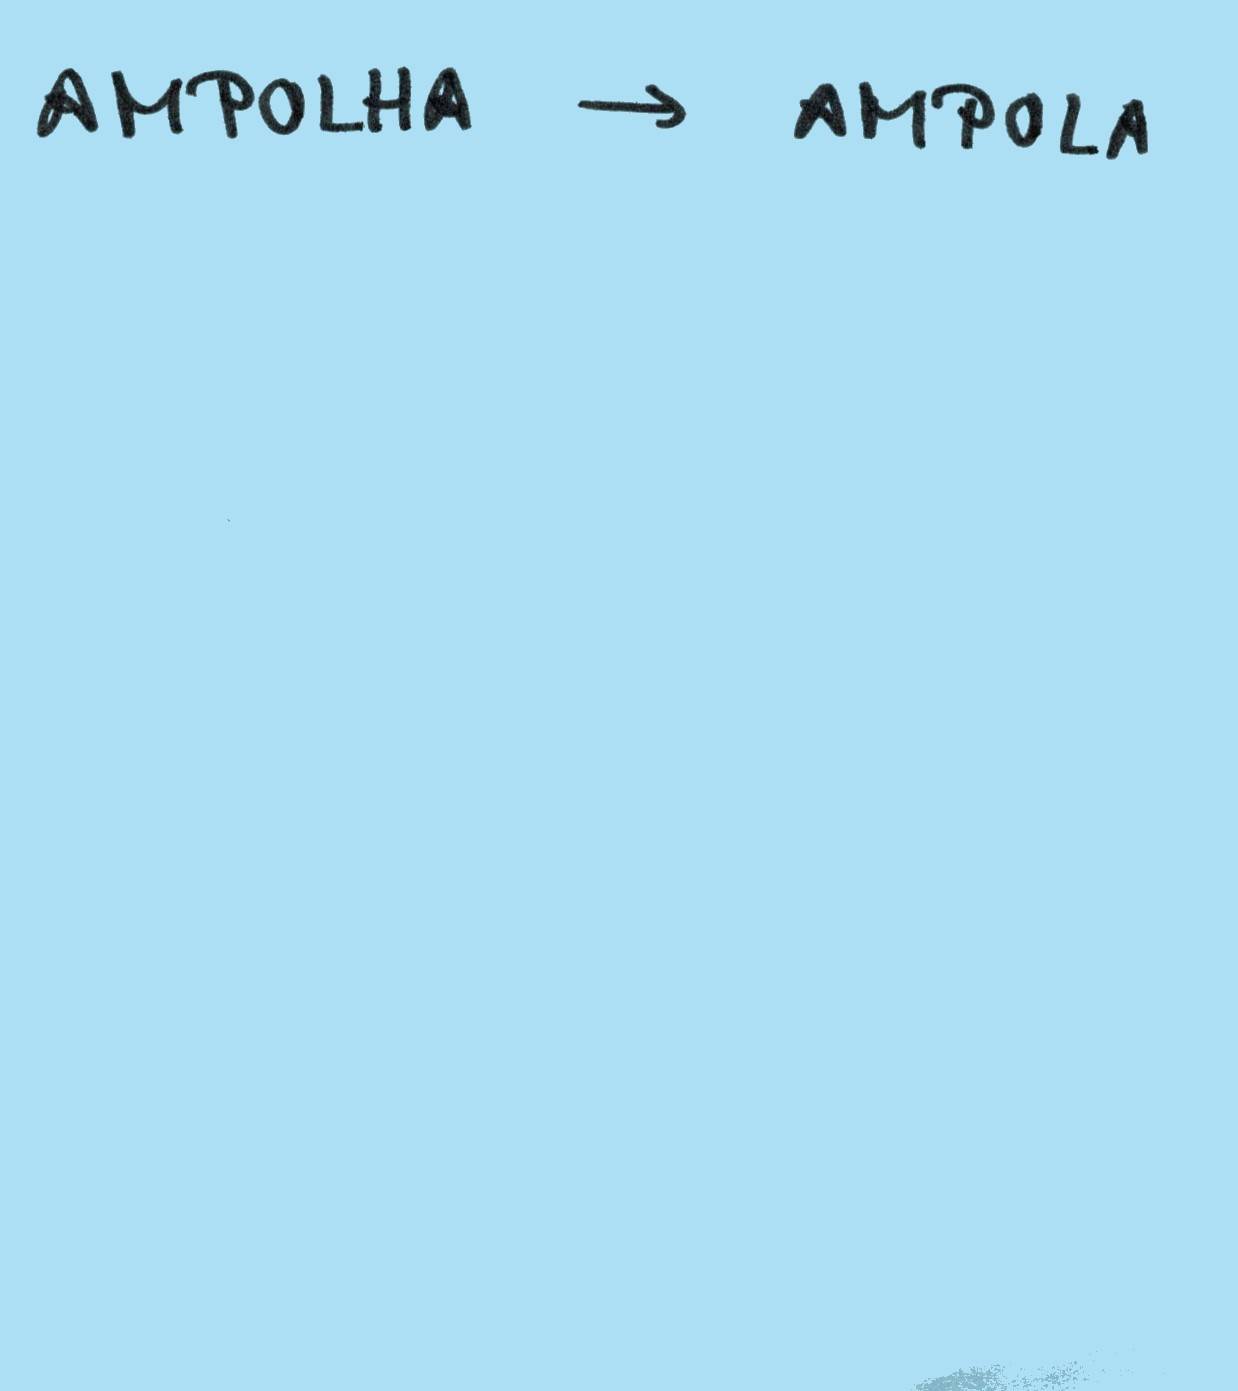 AMPOLHA → AMPOLA